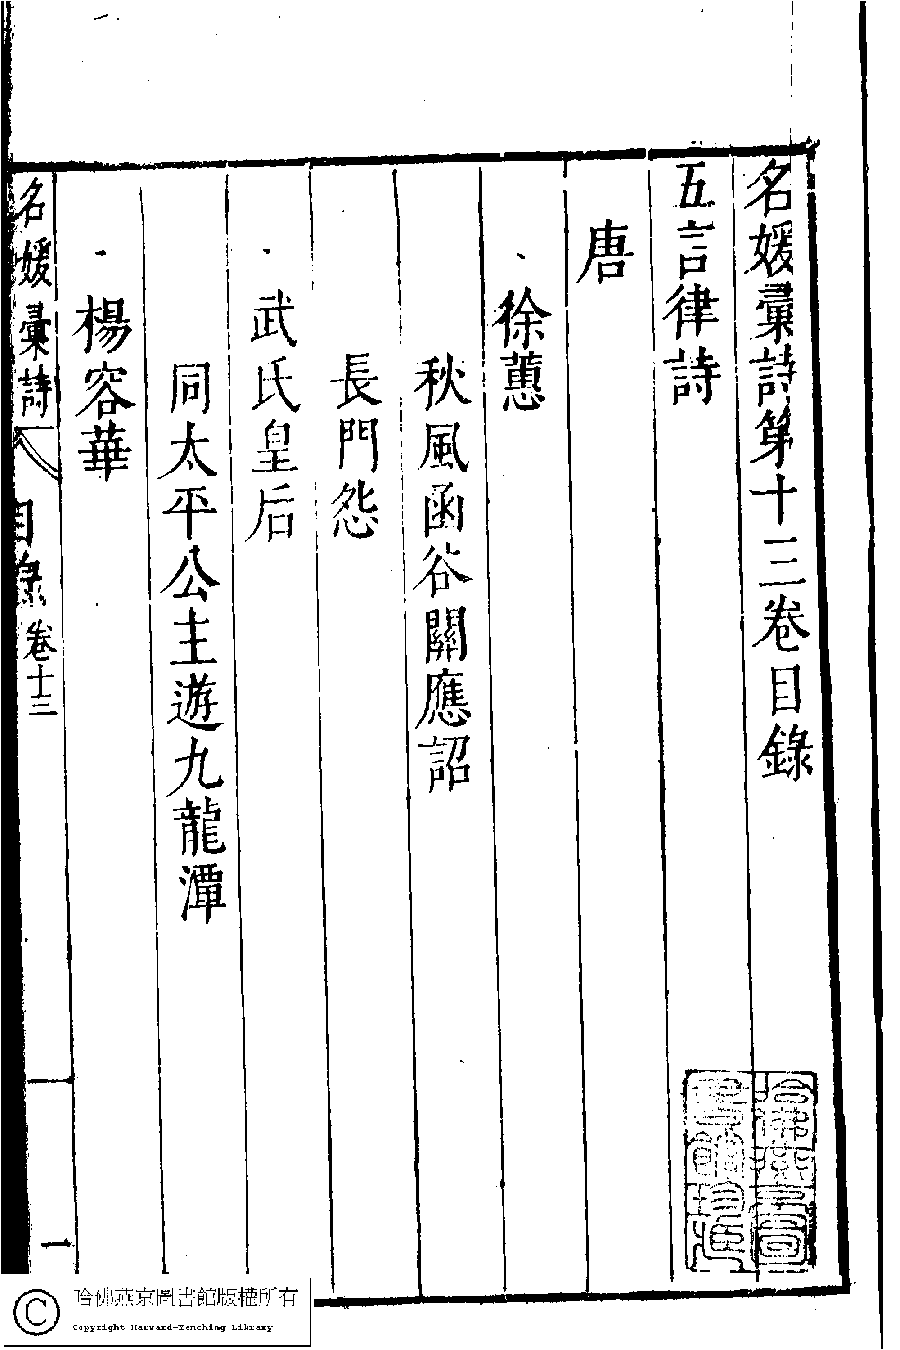 名媛彙詩第十三卷目錄
五言律詩
唐
徐蕙
秋風函谷關應詔
長門怨
武氏皇后
同太平公主遊九龍潭
楊容華
名媛彙詩
目錄
卷十三
一
哈佛燕京圖書館版權所有
Copyright Harvard-Yenching Library